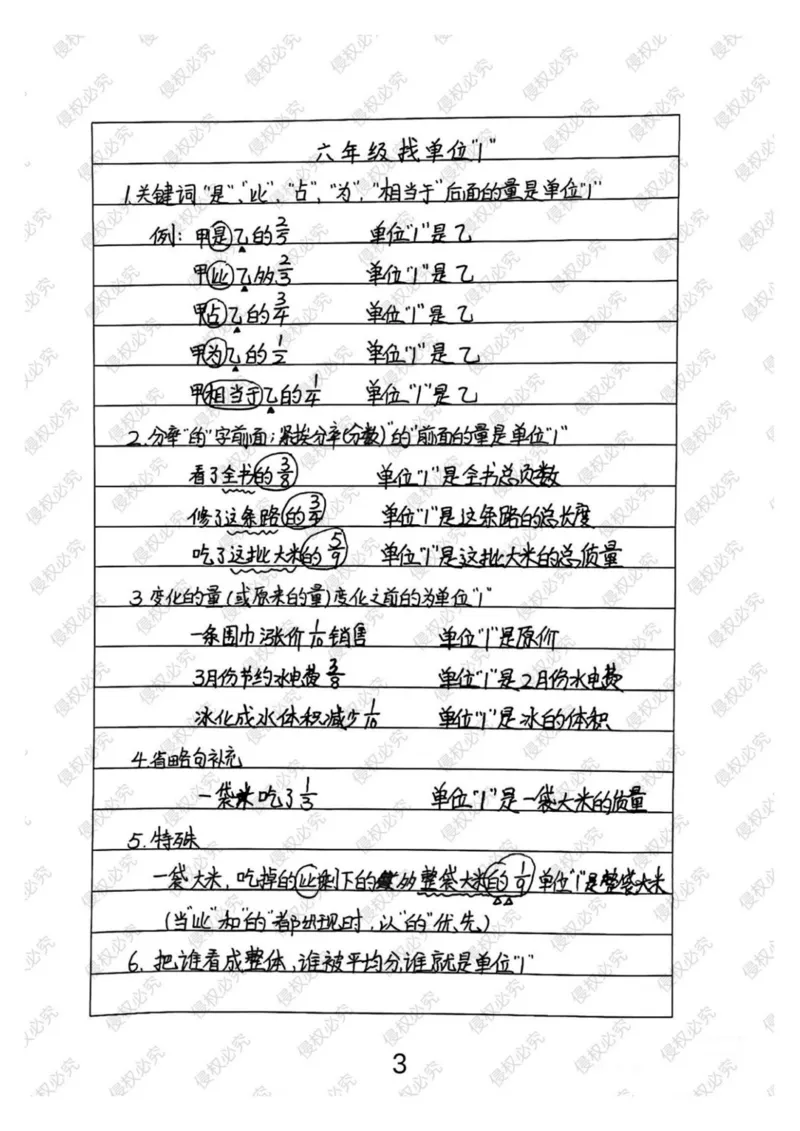 六年级找单位"1"
1.关键词"是"、"比"、"占"、"为"、"相当于"后面的量是单位"1"
例：甲是乙的2/5 单位"1"是乙
甲比乙多2/3 单位"1"是乙
甲占乙的3/4 单位"1"是乙
甲为乙的1/2 单位"1"是乙
甲相当于乙的1/4 单位"1"是乙
2.分率"的"字前面：紧挨分率(分数)"的"前面的量是单位"1"
看了全书的3/8 单位"1"是全书总页数
修了这条路的3/4 单位"1"是这条路的总长度
吃了这批大米的5/9 单位"1"是这批大米的总质量
3.变化的量(或原来的量)变化之前的为单位"1"
一条围巾涨价1/10销售 单位"1"是原价
3月份节约水电费3/8 单位"1"是2月份水电费
冰化成水体积减少1/10 单位"1"是冰的体积
4.省略句补充
一袋米吃了1/3 单位"1"是一袋大米的质量
5.特殊
一袋大米,吃掉的比剩下的多整袋大米的1/9 单位"1"是整袋大米
(当"比"和"的"都出现时,以"的"优先)
6.把谁看成整体,谁被平均分,谁就是单位"1"
3
侵权必究